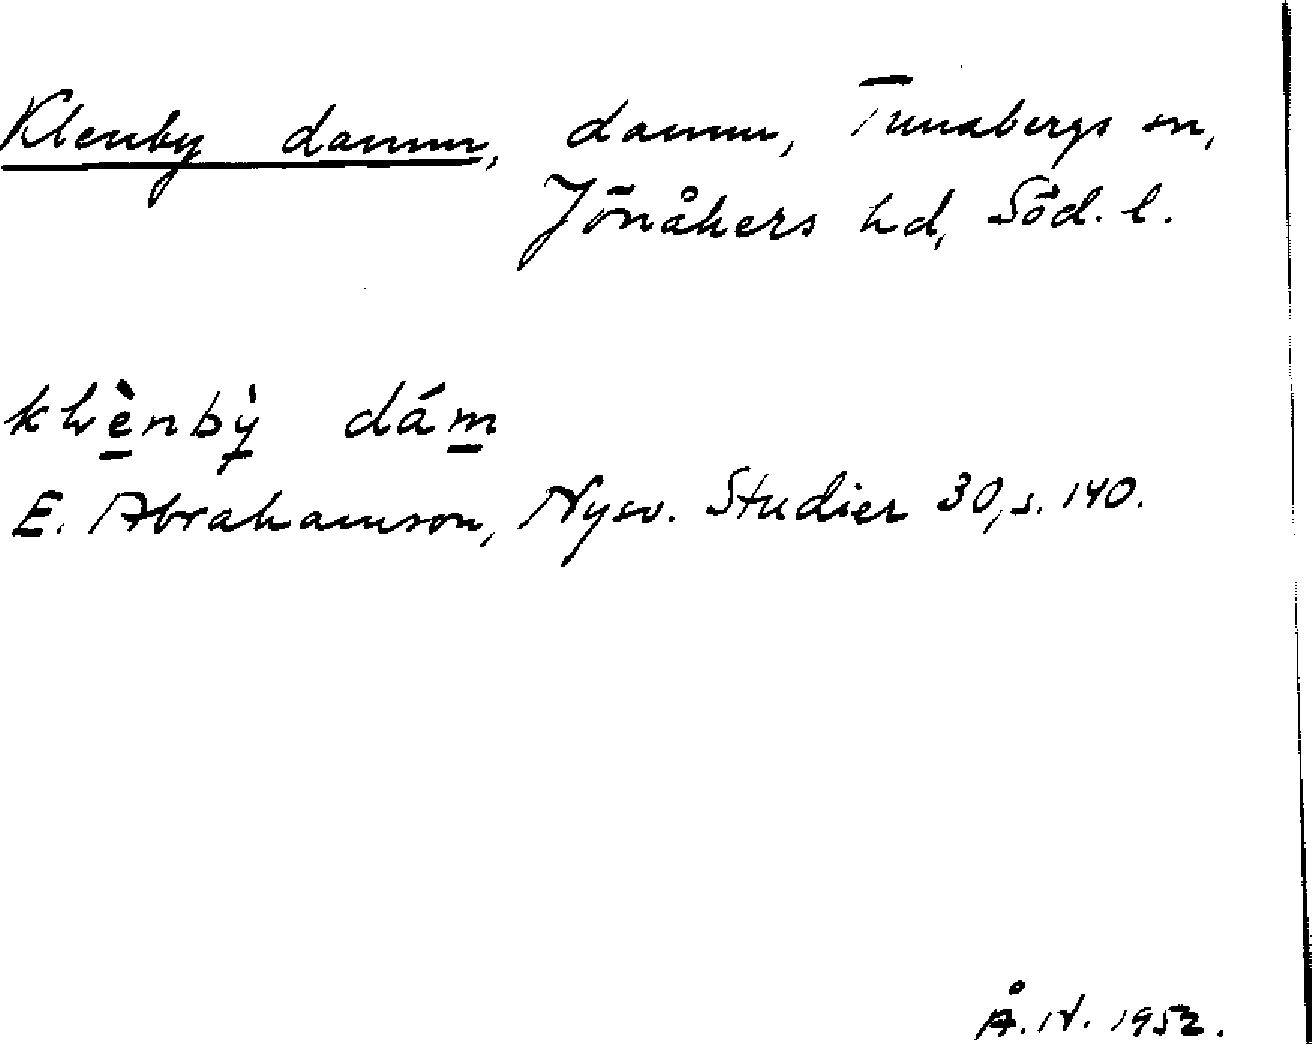 Klenby damm, damm, Tunabergs sn,
Jönåkers hd, Söd. l.
dám
E. Abrahamson, Nysv. Studier 30, s. 140.
Å. N. 1952.